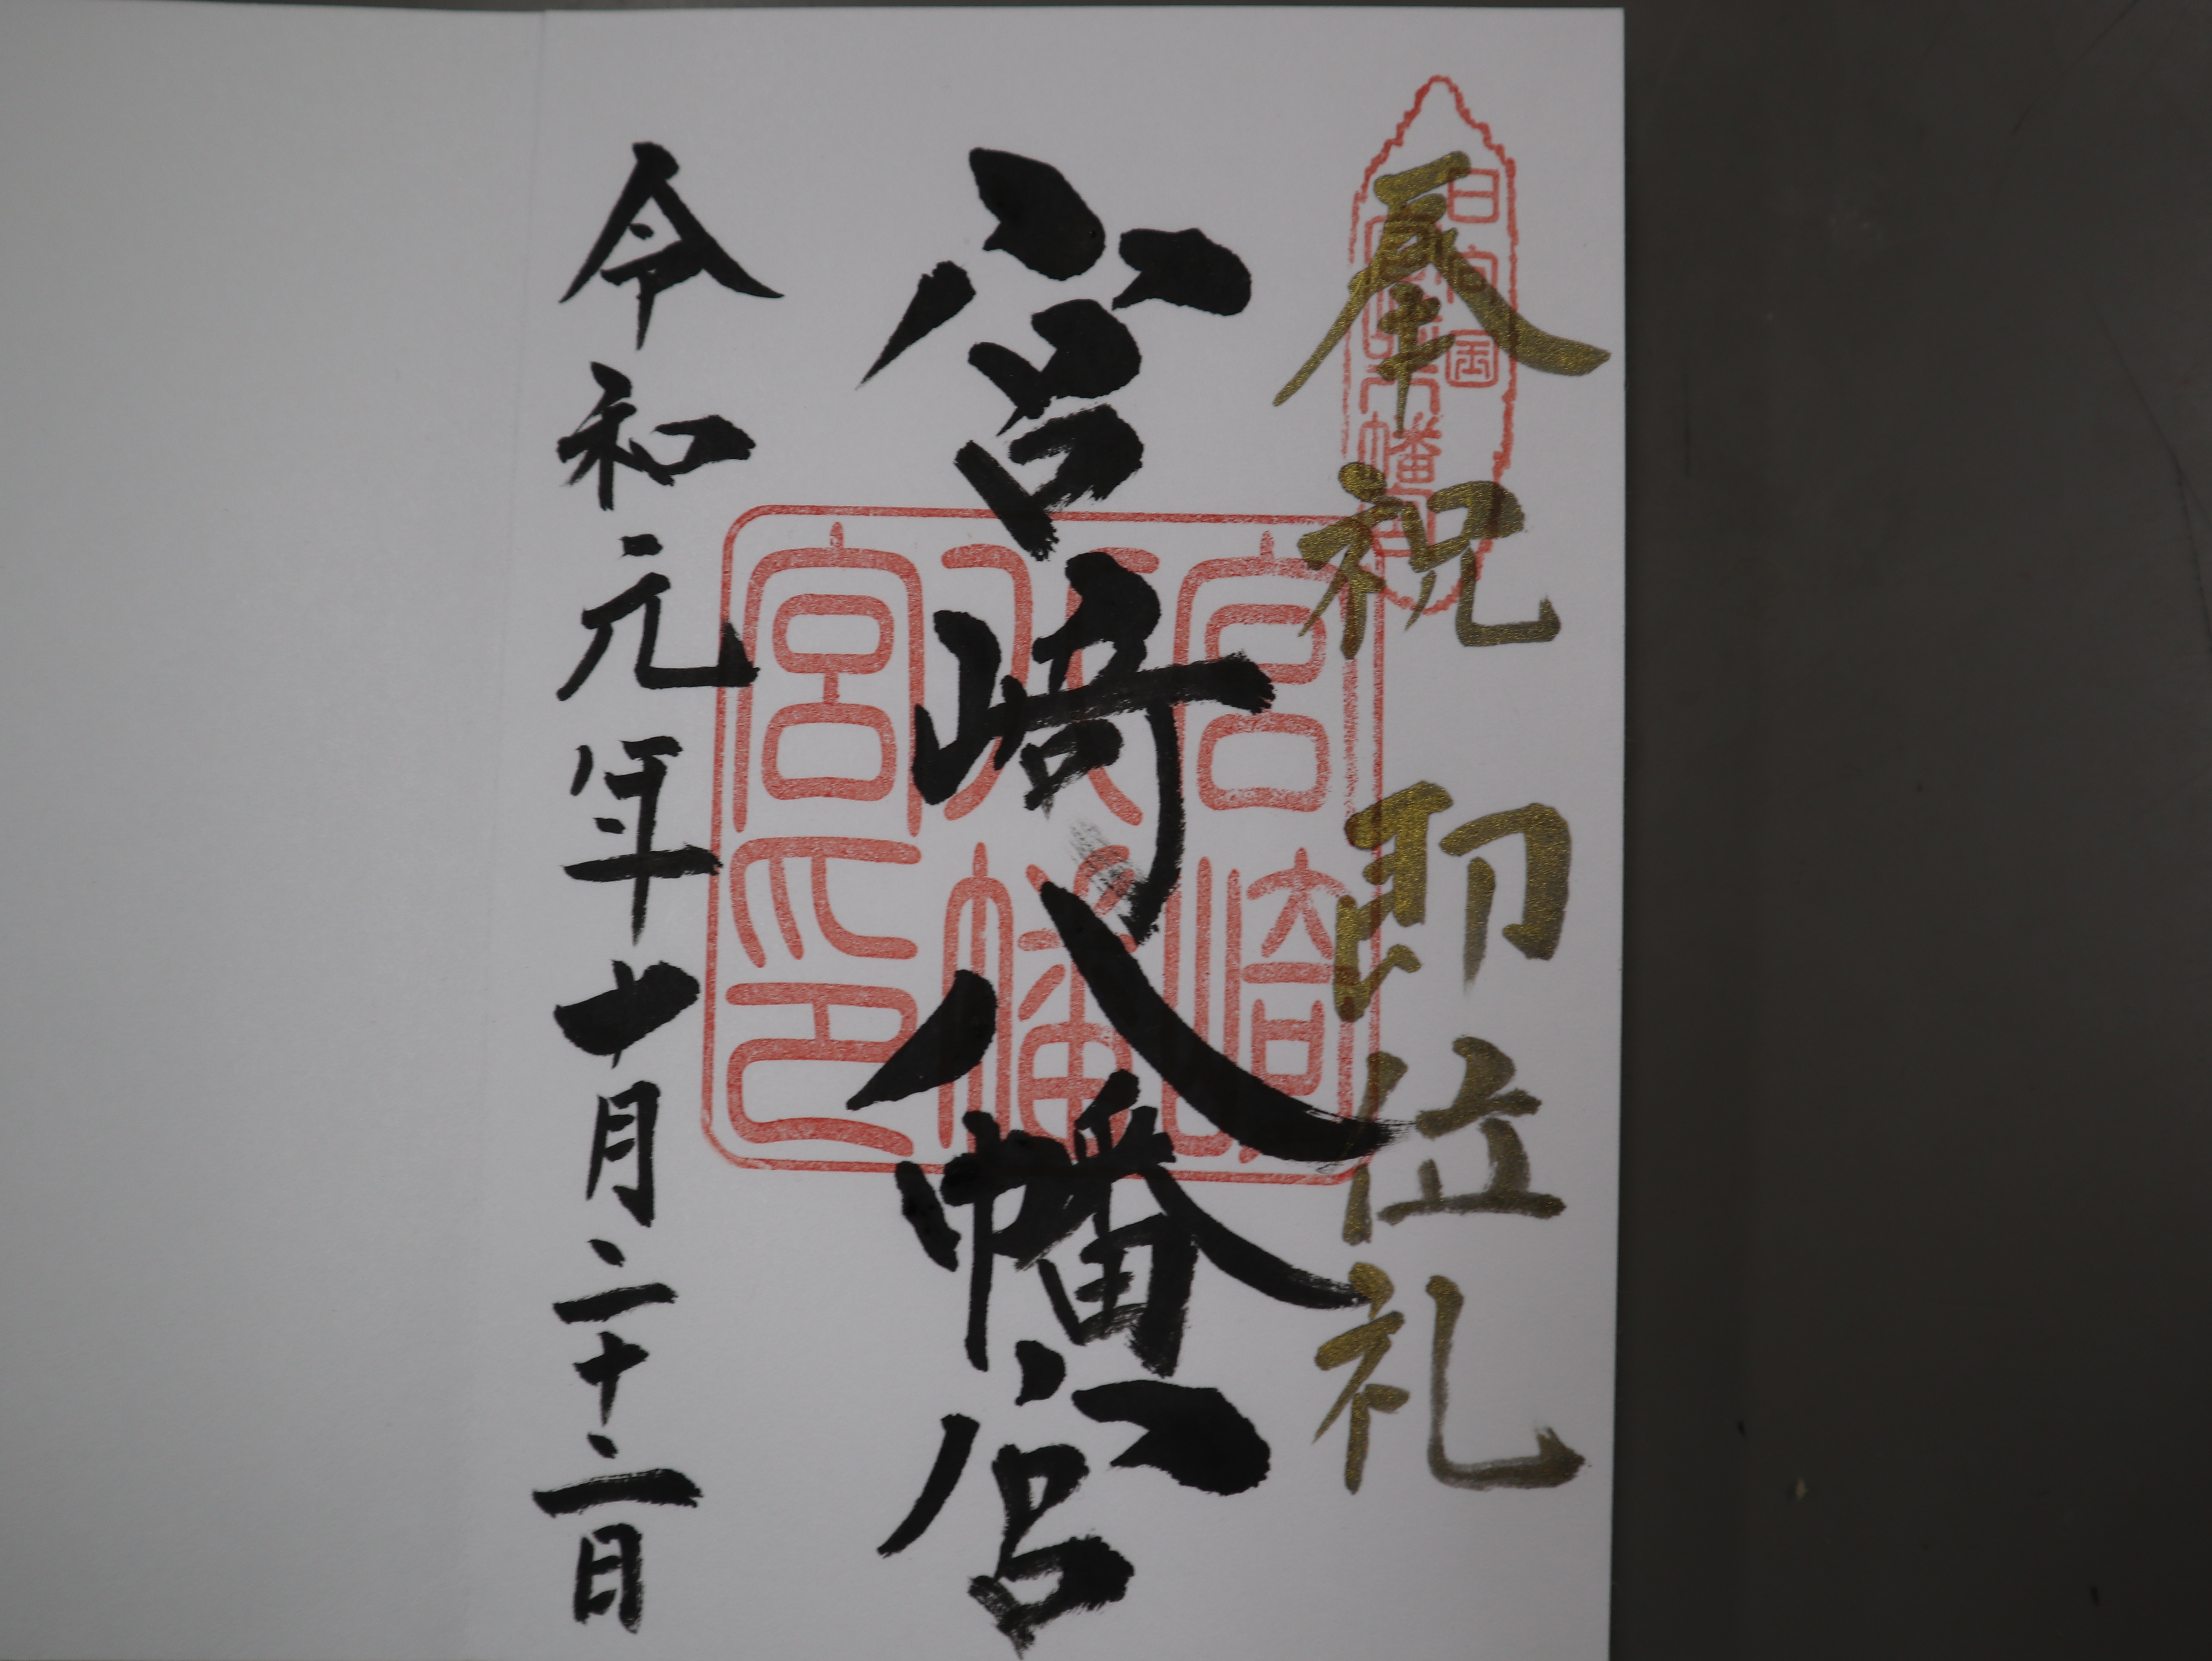 奉祝 即位礼
日向国
宮崎八幡宮
宮崎八幡宮
宮崎八幡宮印
令和元年十月二十二日